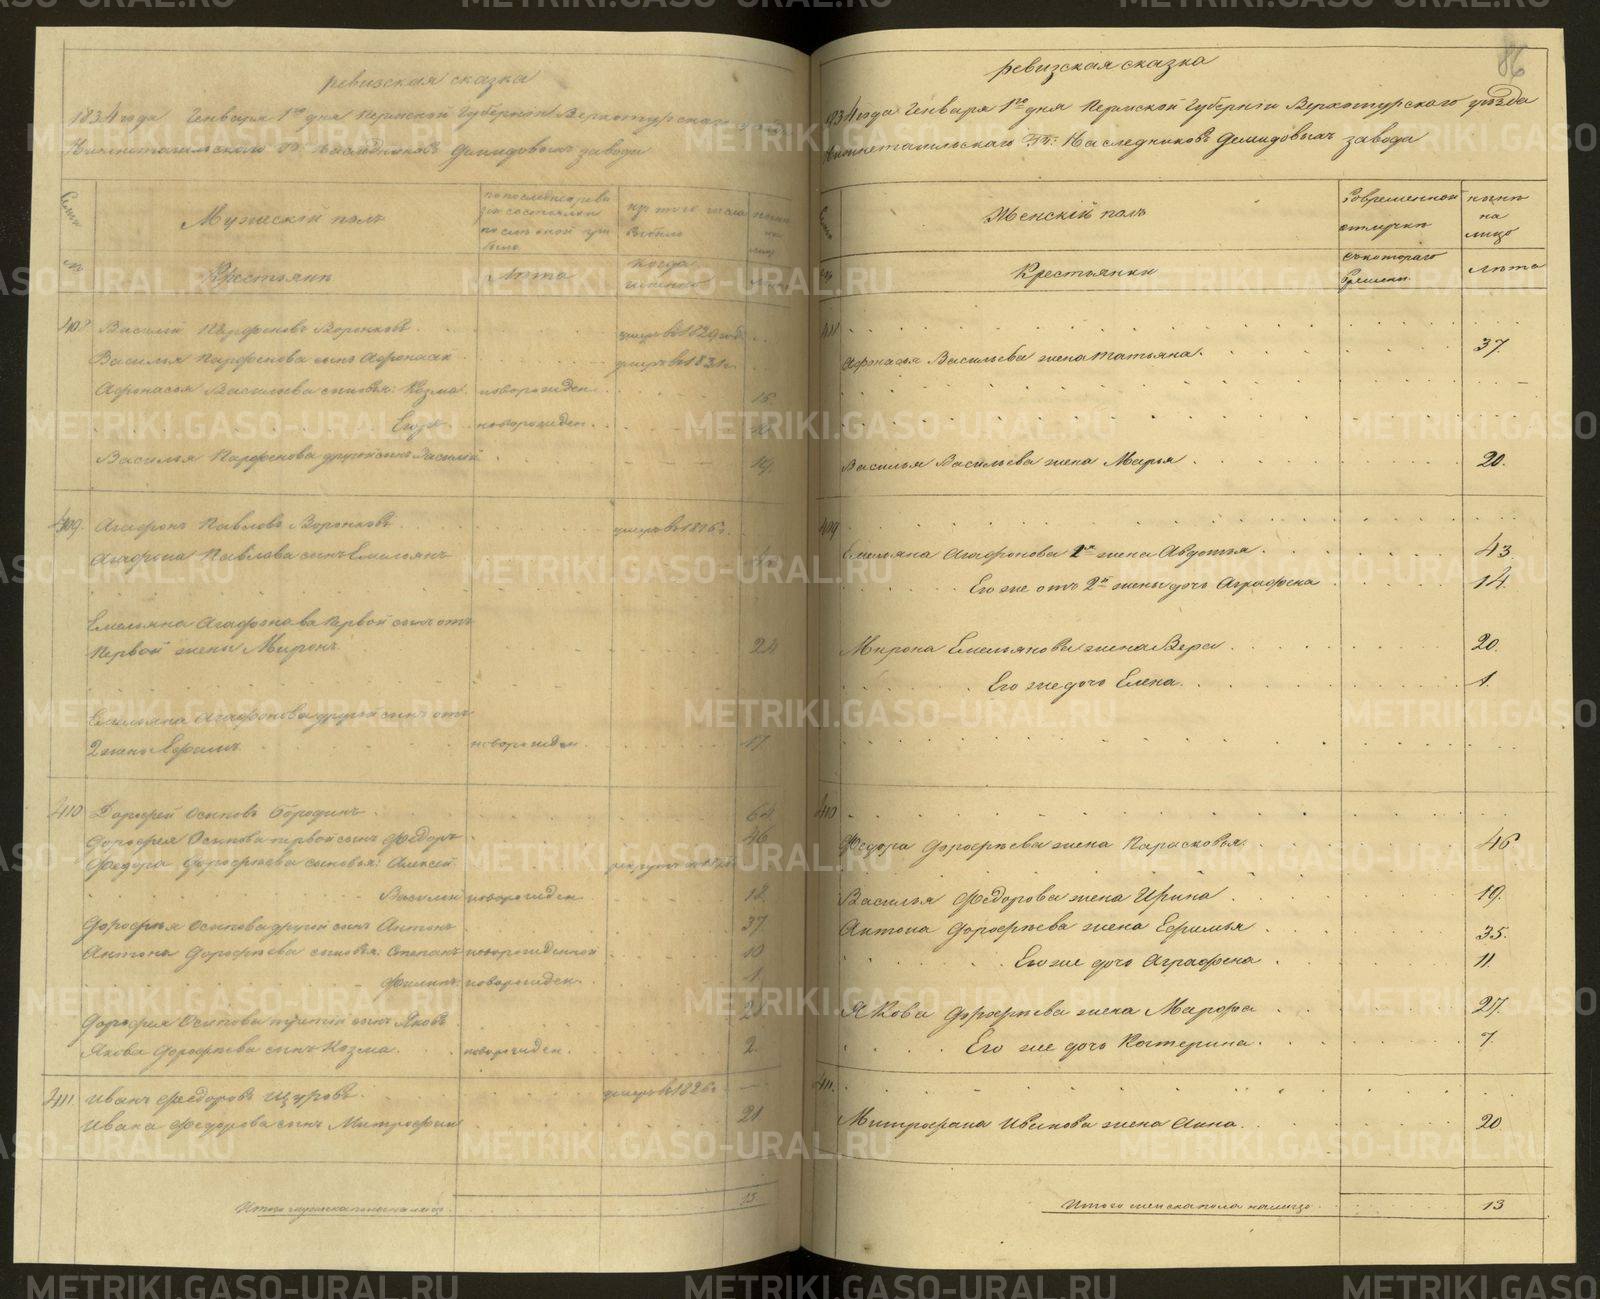 ревизская сказка
1834 года Генваря 1го дня Пермской Губернии Верхотурскаго уѣзда
Нижнетагильскаго Гг. Наследниковъ Демидовыхъ завода
Мужеской полъ
Крестьянъ
Лѣта
когда именно
408 Василій Парфеновъ Воронковъ умеръ въ 1829 году
Василья Парфенова сынъ Афонасій умеръ въ 1831 г.
Афонасья Васильева сыновья: Козма новорожден. 15
Егоръ новорожден.
Василья Парфенова другой сынъ Василій 19.
409. Агафонъ Павловъ Воронковъ умеръ въ 1816 г.
Агафона Павлова сынъ Емельянъ
Емельяна Агафонова первой сынъ отъ
первой жены Миронъ 24
Емельяна Агафонова другой сынъ отъ
2 жены Ефимъ новорожден. 17
410 Дорофей Осиповъ Бородинъ 64
Дорофея Осипова первой сынъ Федоръ 46
Федора Дорофѣева сыновья: Алексей
Василий новорожден 18
Дорофѣя Осипова другой сынъ Антонъ 37
Антона Дорофѣева сыновья: Степанъ новорожденной 10
Филипъ новорожден. 1
Дорофея Осипова третій сынъ Яковъ
Якова Дорофѣева сынъ Козма. новорожден. 2.
411 Иванъ Федоровъ Щуровъ умеръ въ 1826 г.
Ивана Федорова сынъ Митрофанъ 21
Итого мужеска пола на лицо 13
86
ревизская сказка
1834 года Генваря 1го дня Пермской Губерніи Верхотурскаго уѣзда
Нижнетагильскаго Гг: Наследниковъ Демидовыхъ завода
Женскій полъ
Во временной отлучкѣ
нынѣ на лицо
Крестьянки
съ котораго времени
лѣта
Афонасья Васильева жена Татьяна. 37.
Василья Васильева жена Марья 20.
409
Емельяна Агафонова 2я жена Авдотья. 43.
Его же отъ 2й жены дочь Аграфена 14.
Мирона Емельянова жена Вера 20.
Его же дочь Елена. 1.
410
Федора Дорофѣева жена Парасковья. 46
Василья Федорова жена Ирина 19.
Антона Дорофѣева жена Ефимья 35.
Его же дочь Аграфена 11.
Якова Дорофѣева жена Марфа 27.
Его же дочь Катерина. 7
411.
Митрофана Иванова жена Анна. 20
Итого женска пола на лицо 13
METRIKI.GASO-URAL.RU